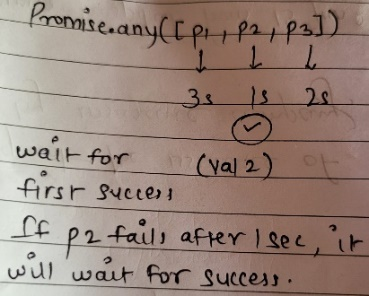 Promise.any([p1, p2, p3])
↓ ↓ ↓
3s 1s 2s
✓
wait for (val 2)
first success
If p2 fails after 1 sec, it
will wait for success.